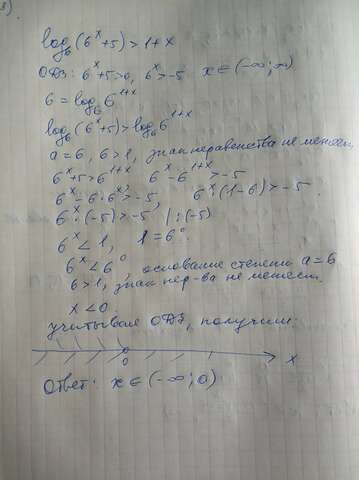 log₆(6ˣ+5)>1+x
ОДЗ: 6ˣ+5>0, 6ˣ>-5 x∈(-∞;∞)
6=log₆6¹⁺ˣ
log₆(6ˣ+5)>log₆6¹⁺ˣ
a=6, 6>1, знак неравенства не меняем
6ˣ+5>6¹⁺ˣ 6ˣ-6¹⁺ˣ>-5
6ˣ-6·6ˣ>-5, 6ˣ(1-6)>-5.
6ˣ·(-5)>-5 |:(-5)
6ˣ<1, 1=6⁰.
6ˣ<6⁰, основание степени a=6
6>1, знак нер-ва не меняем.
x<0
учитывая ОДЗ, получим:
0 x
Ответ: x∈(-∞;0)